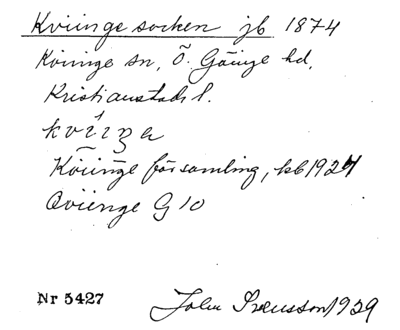 Kviinge socken jb 1874
Kviinge sn, Ö. Göinge hd,
Kristianstads l.
Kviinge församling, kb 1924
Qviinge G 10
Nr 5427 John Svensson 1929